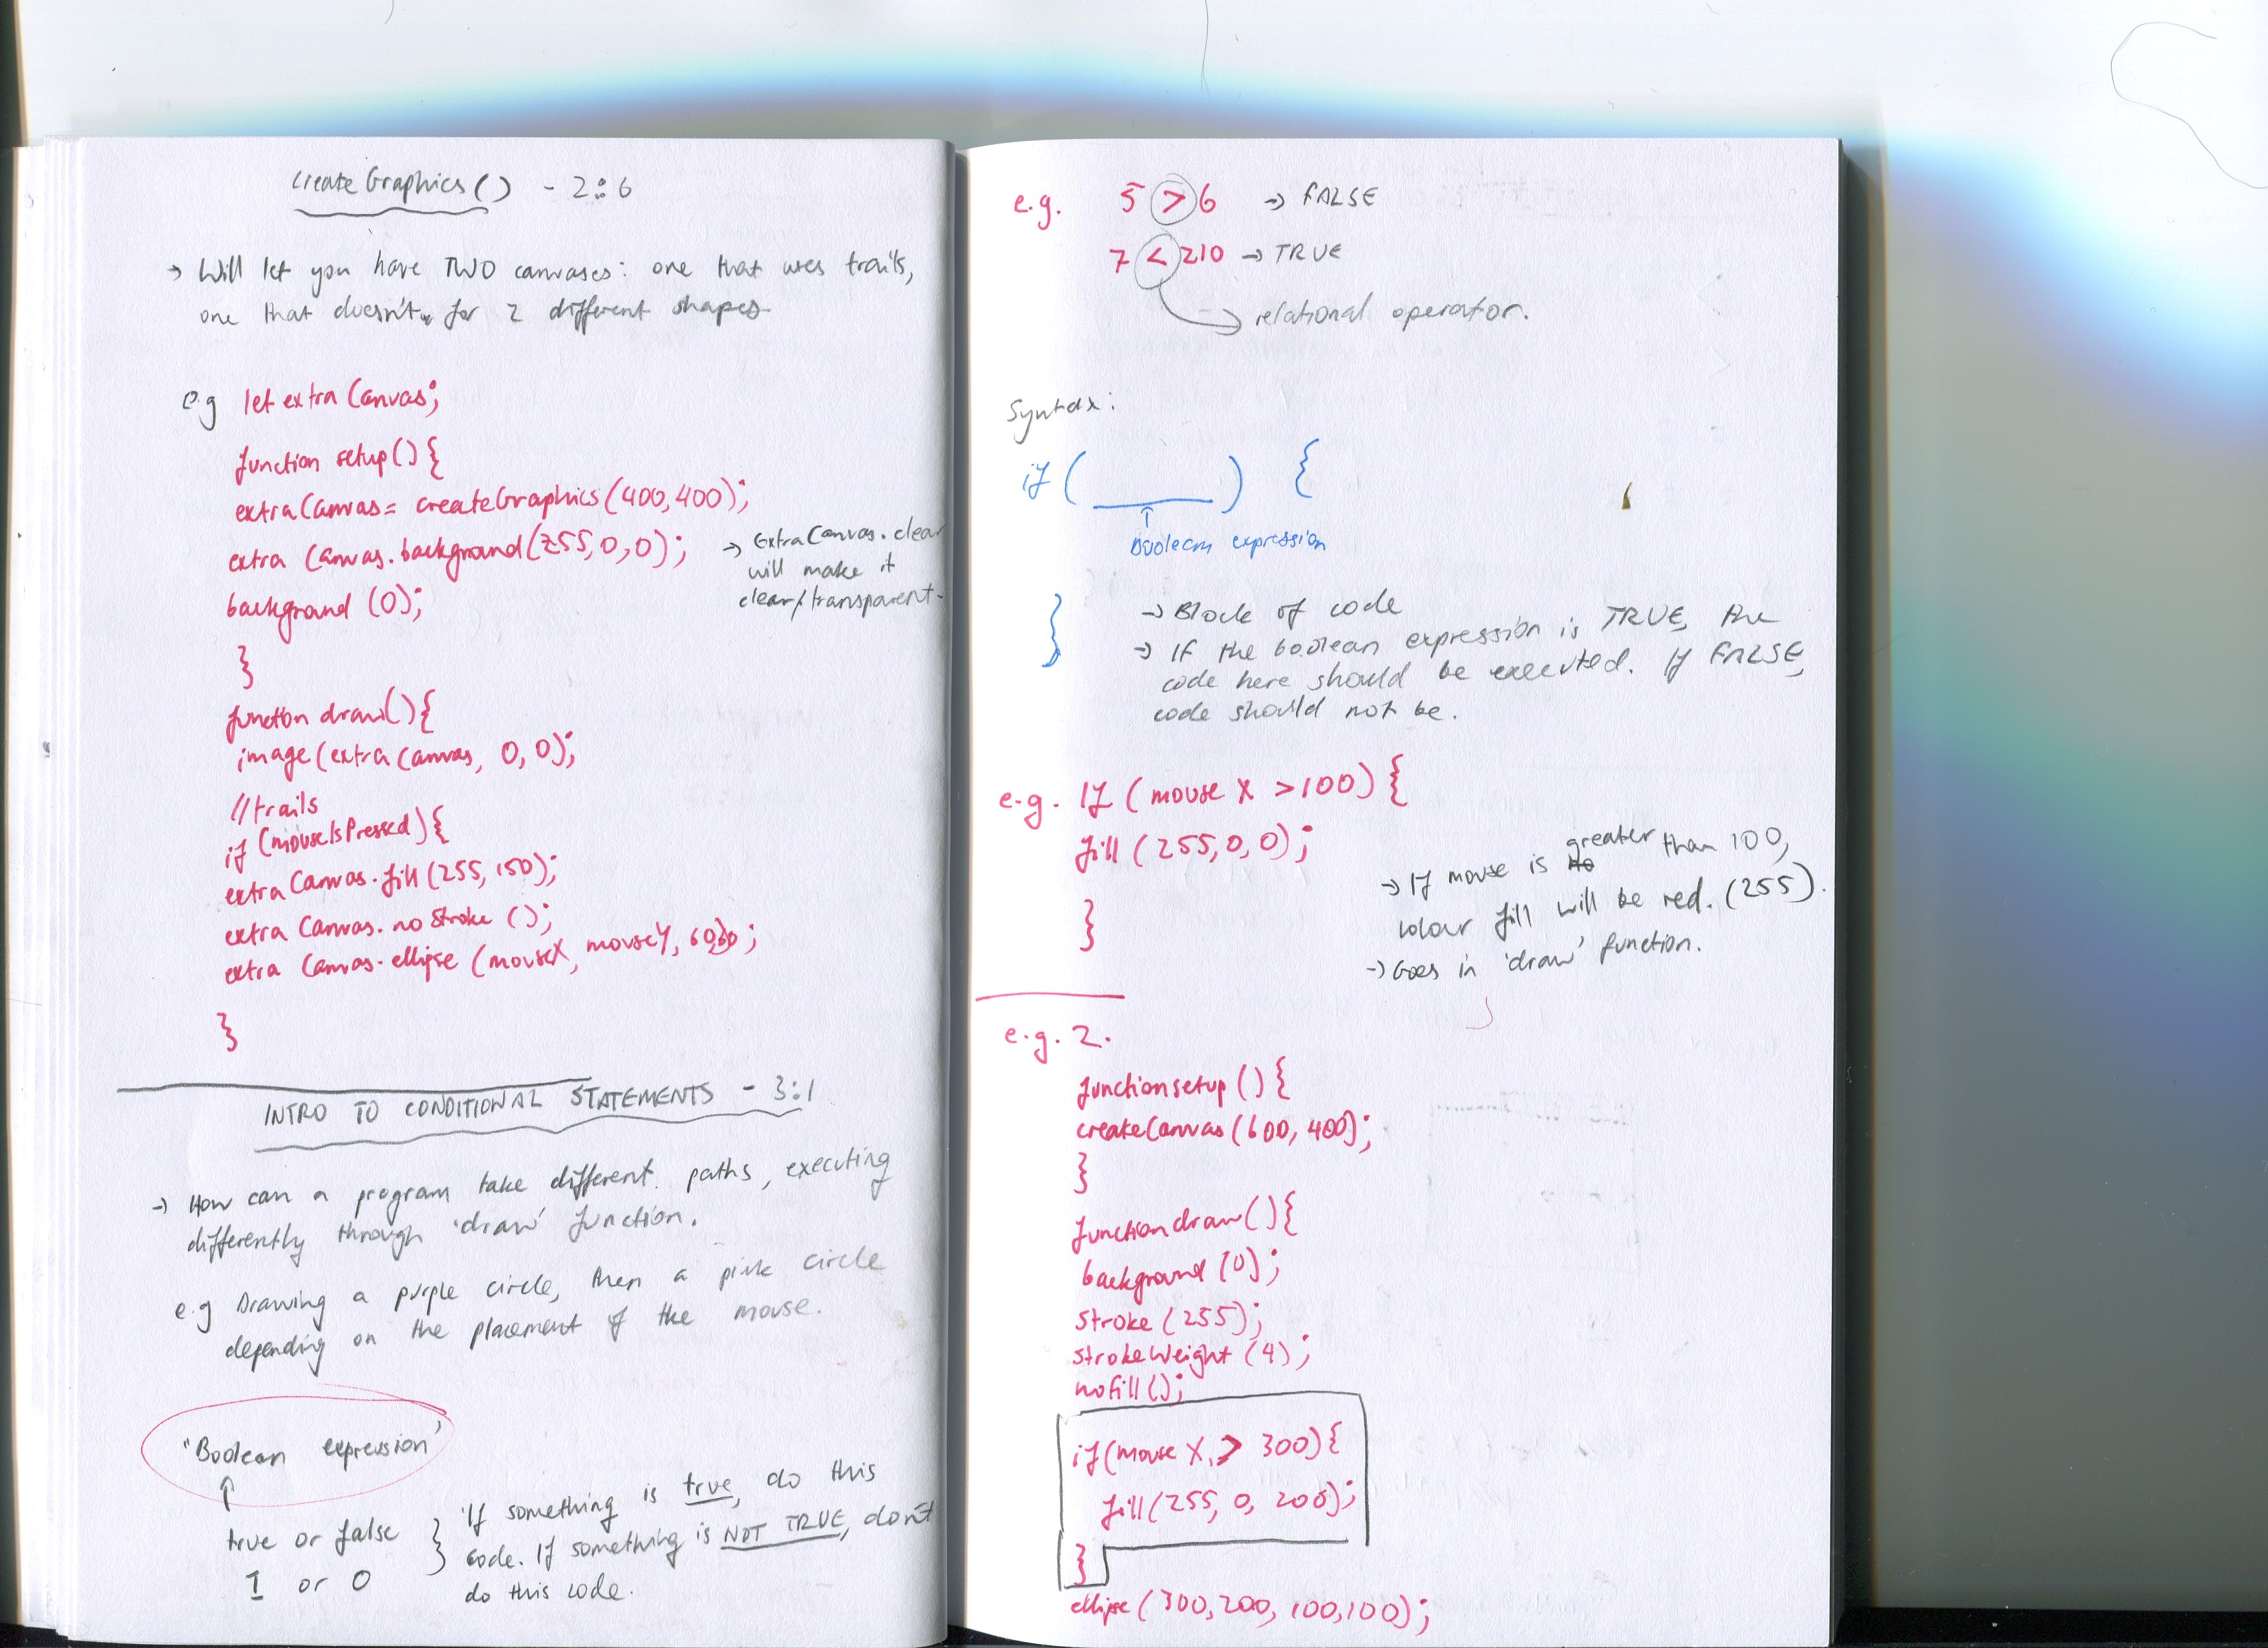 createGraphics() - 2:6
→ Will let you have TWO canvases: one that uses trails,
one that doesn't for 2 different shapes
e.g let extraCanvas;
function setup() {
extraCanvas = createGraphics(400,400);
extraCanvas.background(255,0,0);
→ ExtraCanvas.clear
will make it
clear/transparent.
background (0);
}
function draw() {
image(extraCanvas, 0,0);
//trails
if (mouseIsPressed) {
extraCanvas.fill(255,150);
extraCanvas.noStroke ();
extra Canvas.ellipse (mouseX, mouseY, 60,60);
}
INTRO TO CONDITIONAL STATEMENTS - 3:1
→ How can a program take different paths, executing
differently through 'draw' function.
e.g Drawing a purple circle, then a pink circle
depending on the placement of the mouse.
"Boolean expression"
↑
true or false
1 or 0
} If something is true, do this
code. If something is NOT TRUE, don't
do this code.
e.g. 5 > 6 → FALSE
7 < 210 → TRUE
→ relational operator.
Syntax:
if ( ______ ) {
↑
Boolean expression
}
→ Block of code
→ If the boolean expression is TRUE, the
code here should be executed. If FALSE,
code should not be.
e.g. If (mouse X >100) {
fill (255,0,0);
}
→ If mouse is greater than 100,
colour fill will be red. (255).
→ Goes in 'draw' function.
e.g. 2.
function setup () {
createCanvas (600, 400);
}
function draw () {
background (0);
stroke (255);
strokeWeight (4);
noFill ();
if (mouse X > 300) {
fill (255, 0, 200);
}
ellipse (300,200, 100,100);